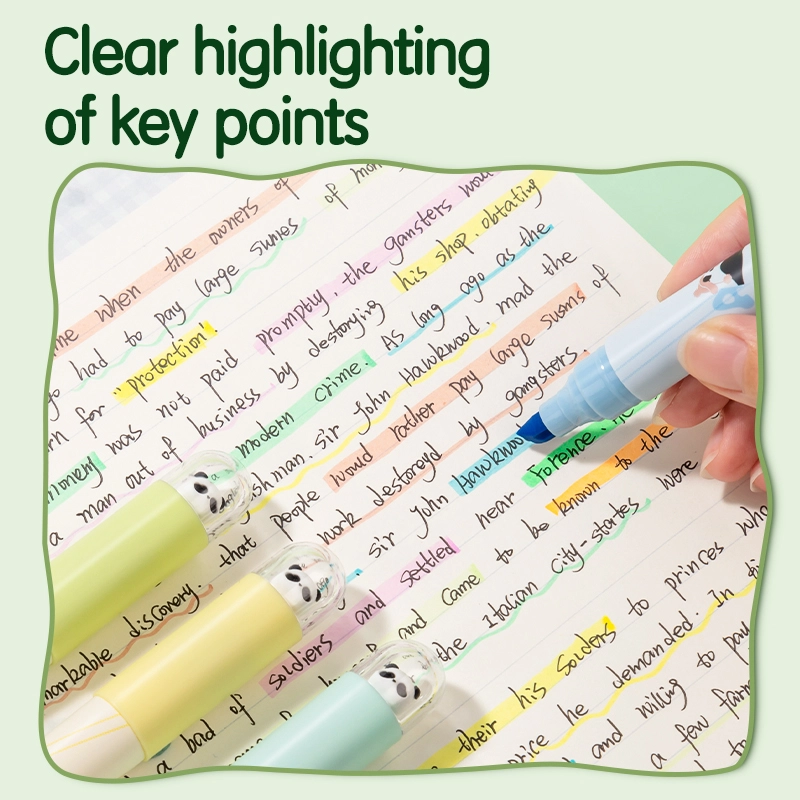 Clear highlighting
of key points
me when the owners of
had to pay large sumes of mon
for "protection". promptly, the gansters woul
money was not paid by destorying his shop, obtating
a man out of business
a modern crime. As long ago as the
shman, sir John Hawkwood, mad the
that people would rather pay large susms of
work destoroyd by gangsters.
sir John Hawkwoo
soldiers and settled near Forence, he
and came to be known to the
the Italian city-startes were
markable discovery.
a bad of
their his solders to princes who
price he demanded. In
and willing to pay
a few farm